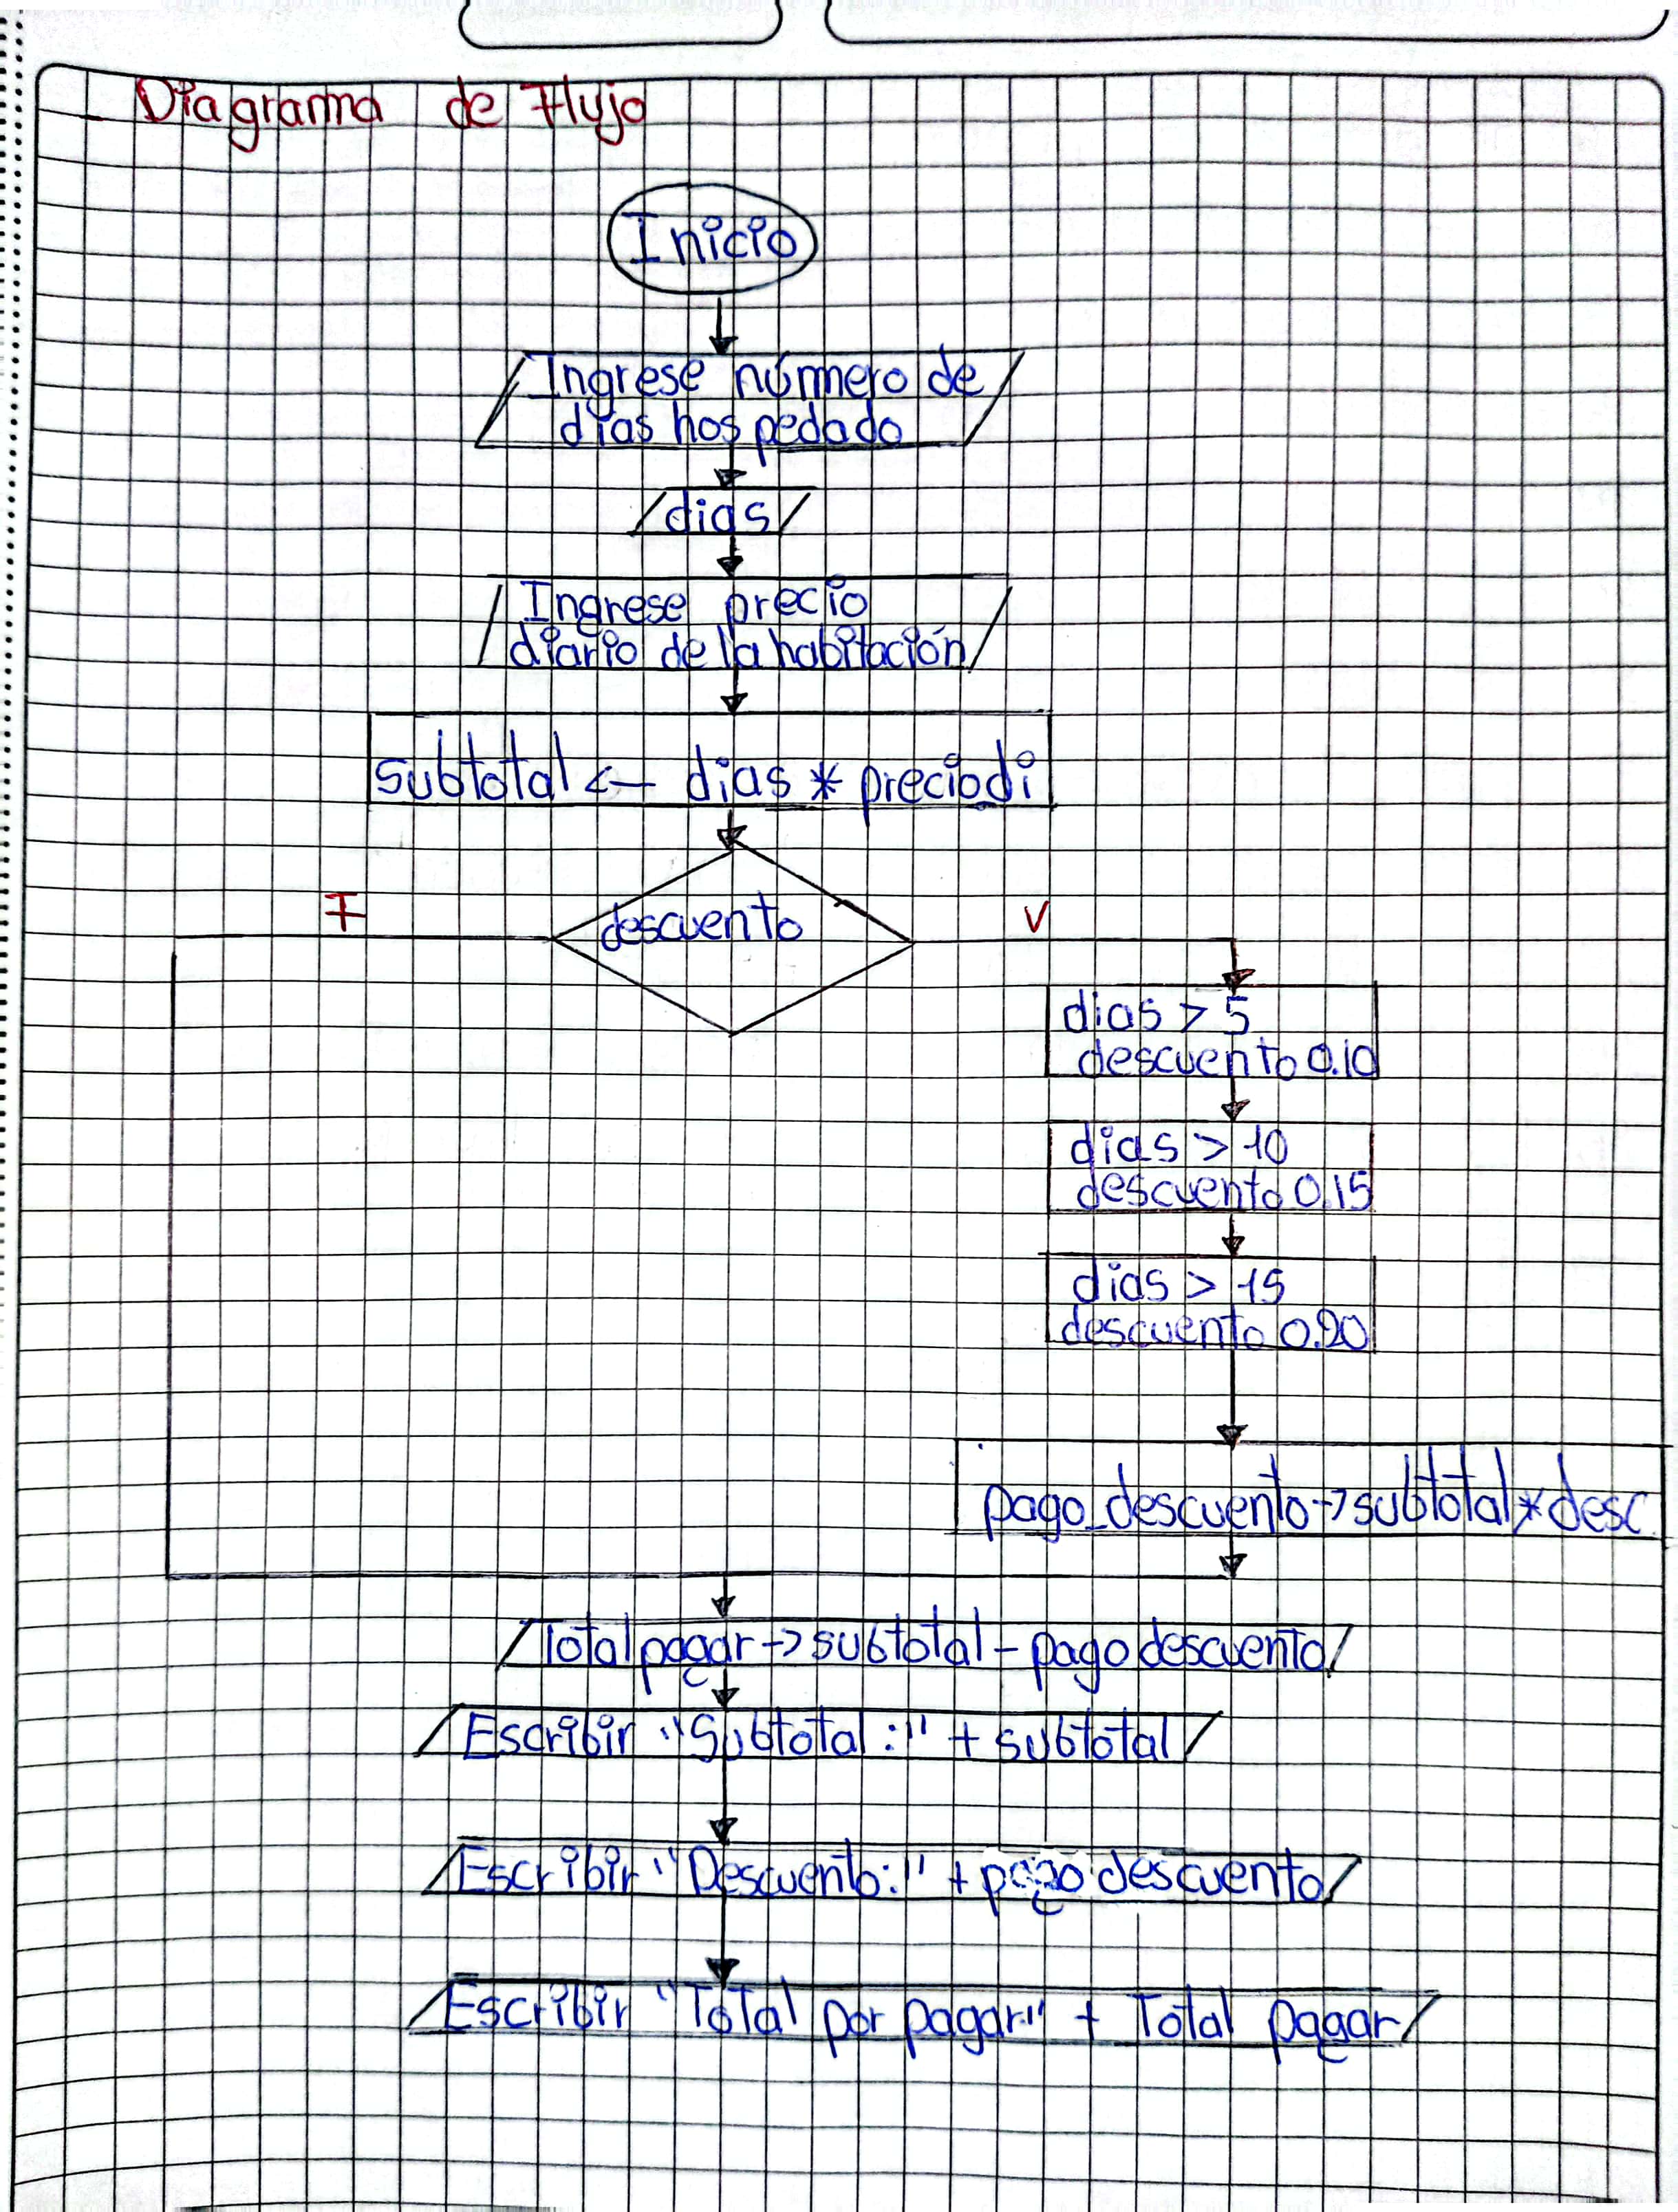 Diagrama de Flujo
Inicio
Ingrese número de
dias hospedado
dias
Ingrese precio
diario de la habitación
subtotal <- dias * preciodi
descuento
F
V
dias > 5
descuento 0.10
dias > 10
descuento 0.15
dias > 15
descuento 0.20
pago_descuento->subtotal*desc.
Total pagar -> subtotal - pago descuento
Escribir "Subtotal:" + subtotal
Escribir "Descuento:" + pago descuento
Escribir "Total por pagar:" + Total pagar